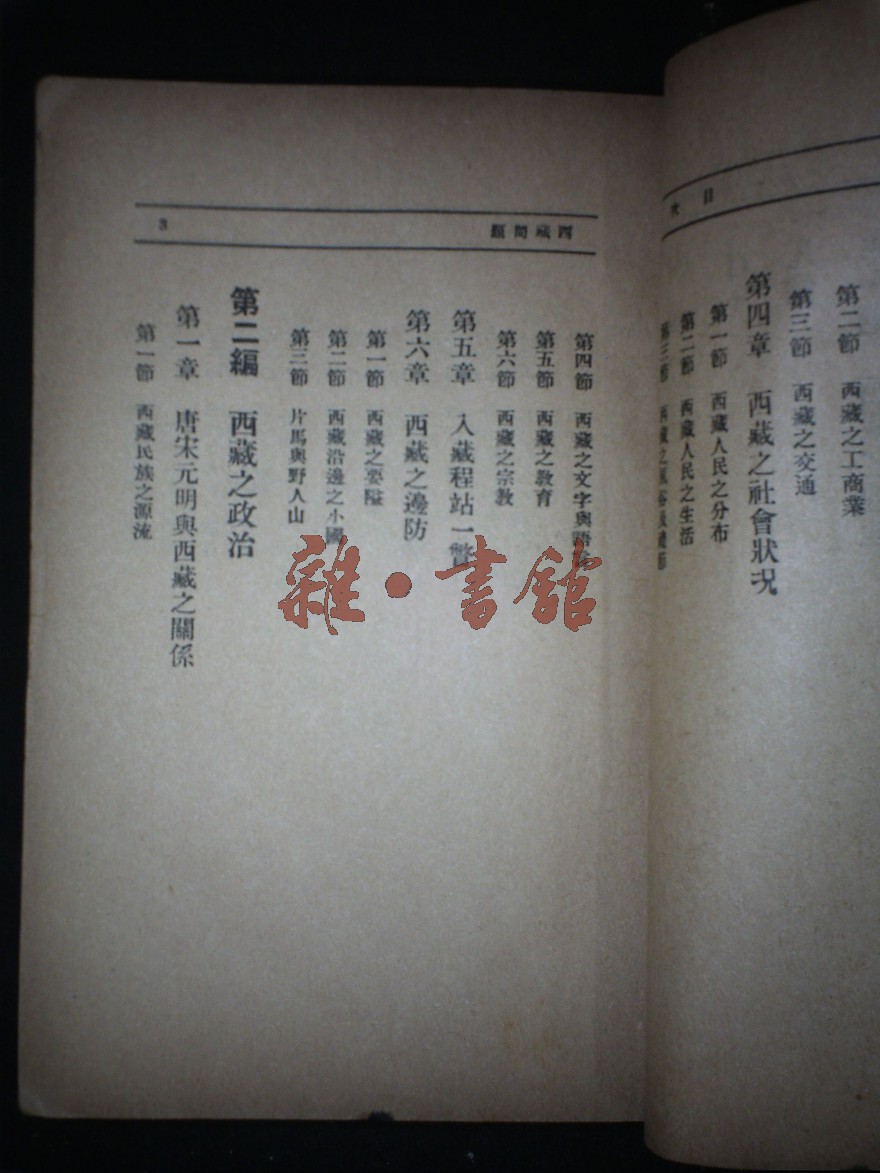 目次
第二節 西藏之工商業
第三節 西藏之交通
第四章 西藏之社會狀況
第一節 西藏人民之分布
第二節 西藏人民之生活
第三節 西藏之風俗及禮節
西藏問題 3
第四節 西藏之文字與語言
第五節 西藏之教育
第六節 西藏之宗教
第五章 入藏程站一瞥
第六章 西藏之邊防
第一節 西藏之要隘
第二節 西藏沿邊之小國
第三節 片馬與野人山
第二編 西藏之政治
第一章 唐宋元明與西藏之關係
第一節 西藏民族之源流
雜·書館